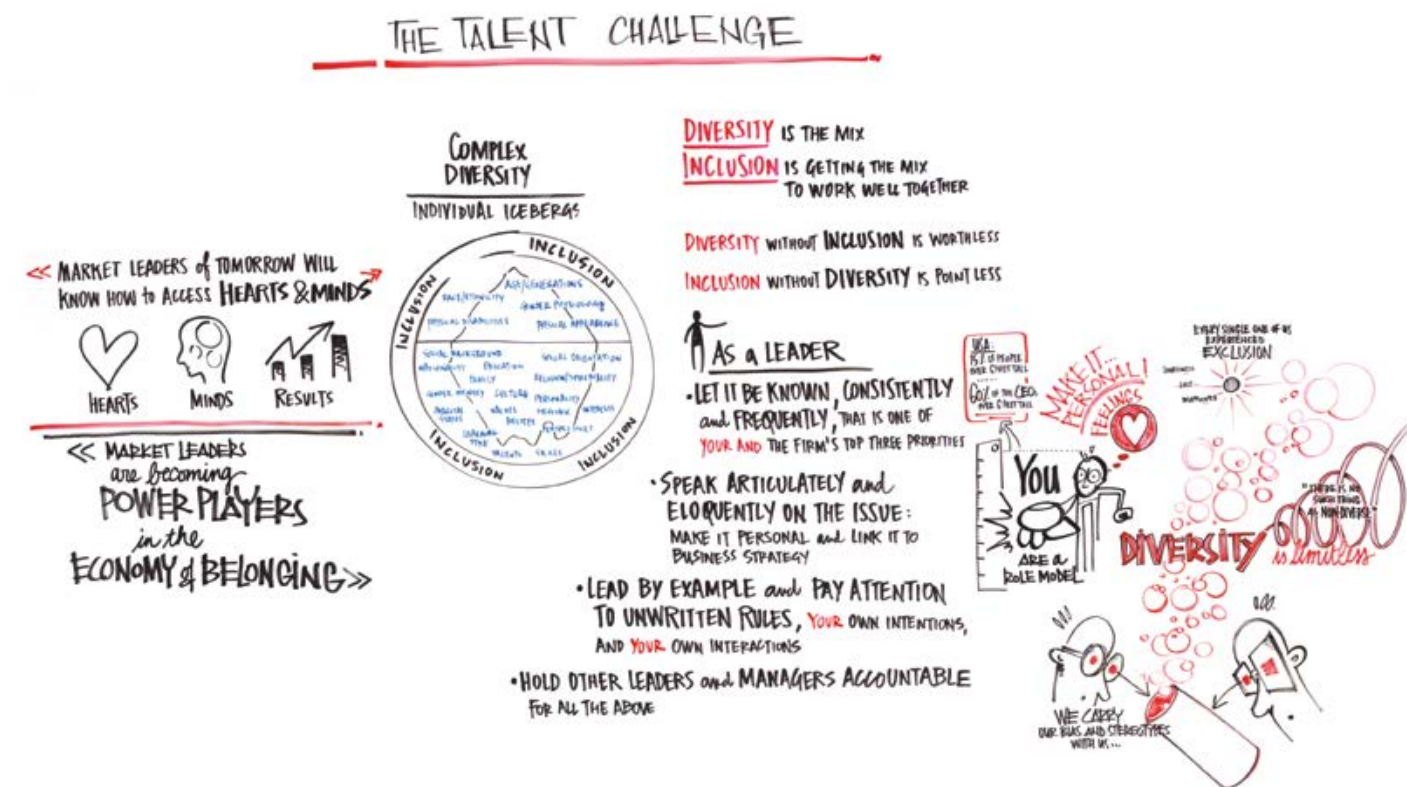 THE TALENT CHALLENGE
<< MARKET LEADERS of TOMORROW WILL >>
KNOW HOW to ACCESS HEARTS & MINDS
HEARTS
MINDS
RESULTS
<< MARKET LEADERS
are becoming
POWER PLAYERS
in the
ECONOMY of BELONGING >>
COMPLEX
DIVERSITY
INDIVIDUAL ICEBERGS
INCLUSION
INCLUSION
INCLUSION
INCLUSION
AGE/GENERATIONS
RACE/ETHNICITY
GENDER PHYSIOLOGY
PHYSICAL DISABILITIES
PHYSICAL APPEARANCE
SOCIAL BACKGROUND
NATIONALITY
EDUCATION
FAMILY
RELIGION/SPIRITUALITY
GENDER IDENTITY
CULTURE
PERSONALITY
VALUES
INTERESTS
BELIEFS
LEARNING
STYLE
TALENTS
SKILLS
DIVERSITY IS THE MIX
INCLUSION IS GETTING THE MIX
TO WORK WELL TOGETHER
DIVERSITY WITHOUT INCLUSION IS WORTHLESS
INCLUSION WITHOUT DIVERSITY IS POINT LESS
AS A LEADER
• LET IT BE KNOWN, CONSISTENTLY
and FREQUENTLY, THAT IS ONE OF
YOUR AND THE FIRM'S TOP THREE PRIORITIES
• SPEAK ARTICULATELY and
ELOQUENTLY ON THE ISSUE:
MAKE IT PERSONAL and LINK IT TO
BUSINESS STRATEGY
• LEAD BY EXAMPLE and PAY ATTENTION
TO UNWRITTEN RULES, YOUR OWN INTENTIONS,
AND YOUR OWN INTERACTIONS
• HOLD OTHER LEADERS and MANAGERS ACCOUNTABLE
FOR ALL THE ABOVE
USA:
15% OF PEOPLE
OVER 6 FEET TALL
60% OF THE CEOs
OVER 6 FEET TALL
MAKE IT...
PERSONAL!
FEELINGS
YOU
ARE A
ROLE MODEL
EVERY SINGLE ONE OF US
EXPERIENCED
EXCLUSION
"THERE IS NO
SUCH THING
AS NON-DIVERSE"
DIVERSITY
is limitless
WE CARRY
OUR BIAS AND STEREOTYPES
WITH US...